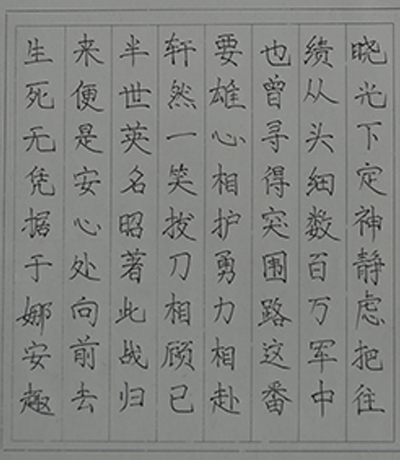 晓光下定神静虑把往
绩从头细数百万军中
也曾寻得突围路这番
要雄心相护勇力相赴
轩然一笑拔刀相顾已
半世英名昭著此战归
来便是安心处向前去
生死无凭据于娜安趣